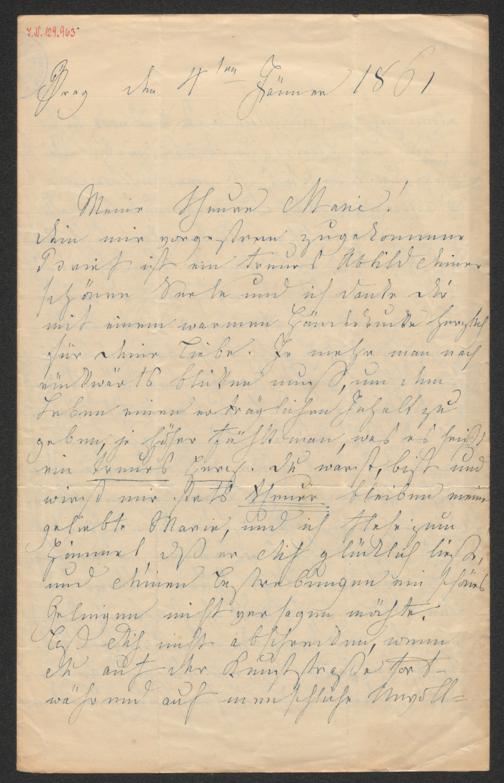 I.N. 129.963
Prag den 4ten Jänner 1861
Meine theure Marie!
Dein mir vorgestern zugekommener
Brief ist ein treues Abbild Deiner
schönen Seele und ich danke Dir
mit einem warmen Händedrucke herzlich
für Deine Liebe. Je mehr man nach
rückwärts blicken muß, um dem
Leben einen erträglichen Inhalt zu
geben, je höher man, was es heißt
ein treues Herz. Du warst, bist und
wirst mir stets theuer bleiben meine
geliebte Marie, und ich flehe zum
Himmel daß er Dich glücklich ließe,
und Deinen Bestrebungen ein schönes
Gelingen nicht versagen möchte.
Laß Dich nicht abschrecken, wenn
Du auf der Kunststraße fort-
während auf menschliche Unvoll=